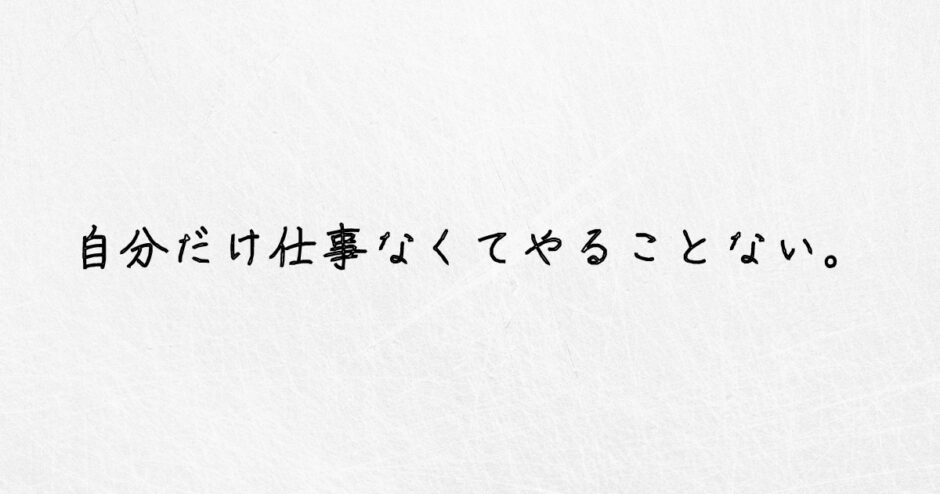 自分だけ仕事なくてやることない。